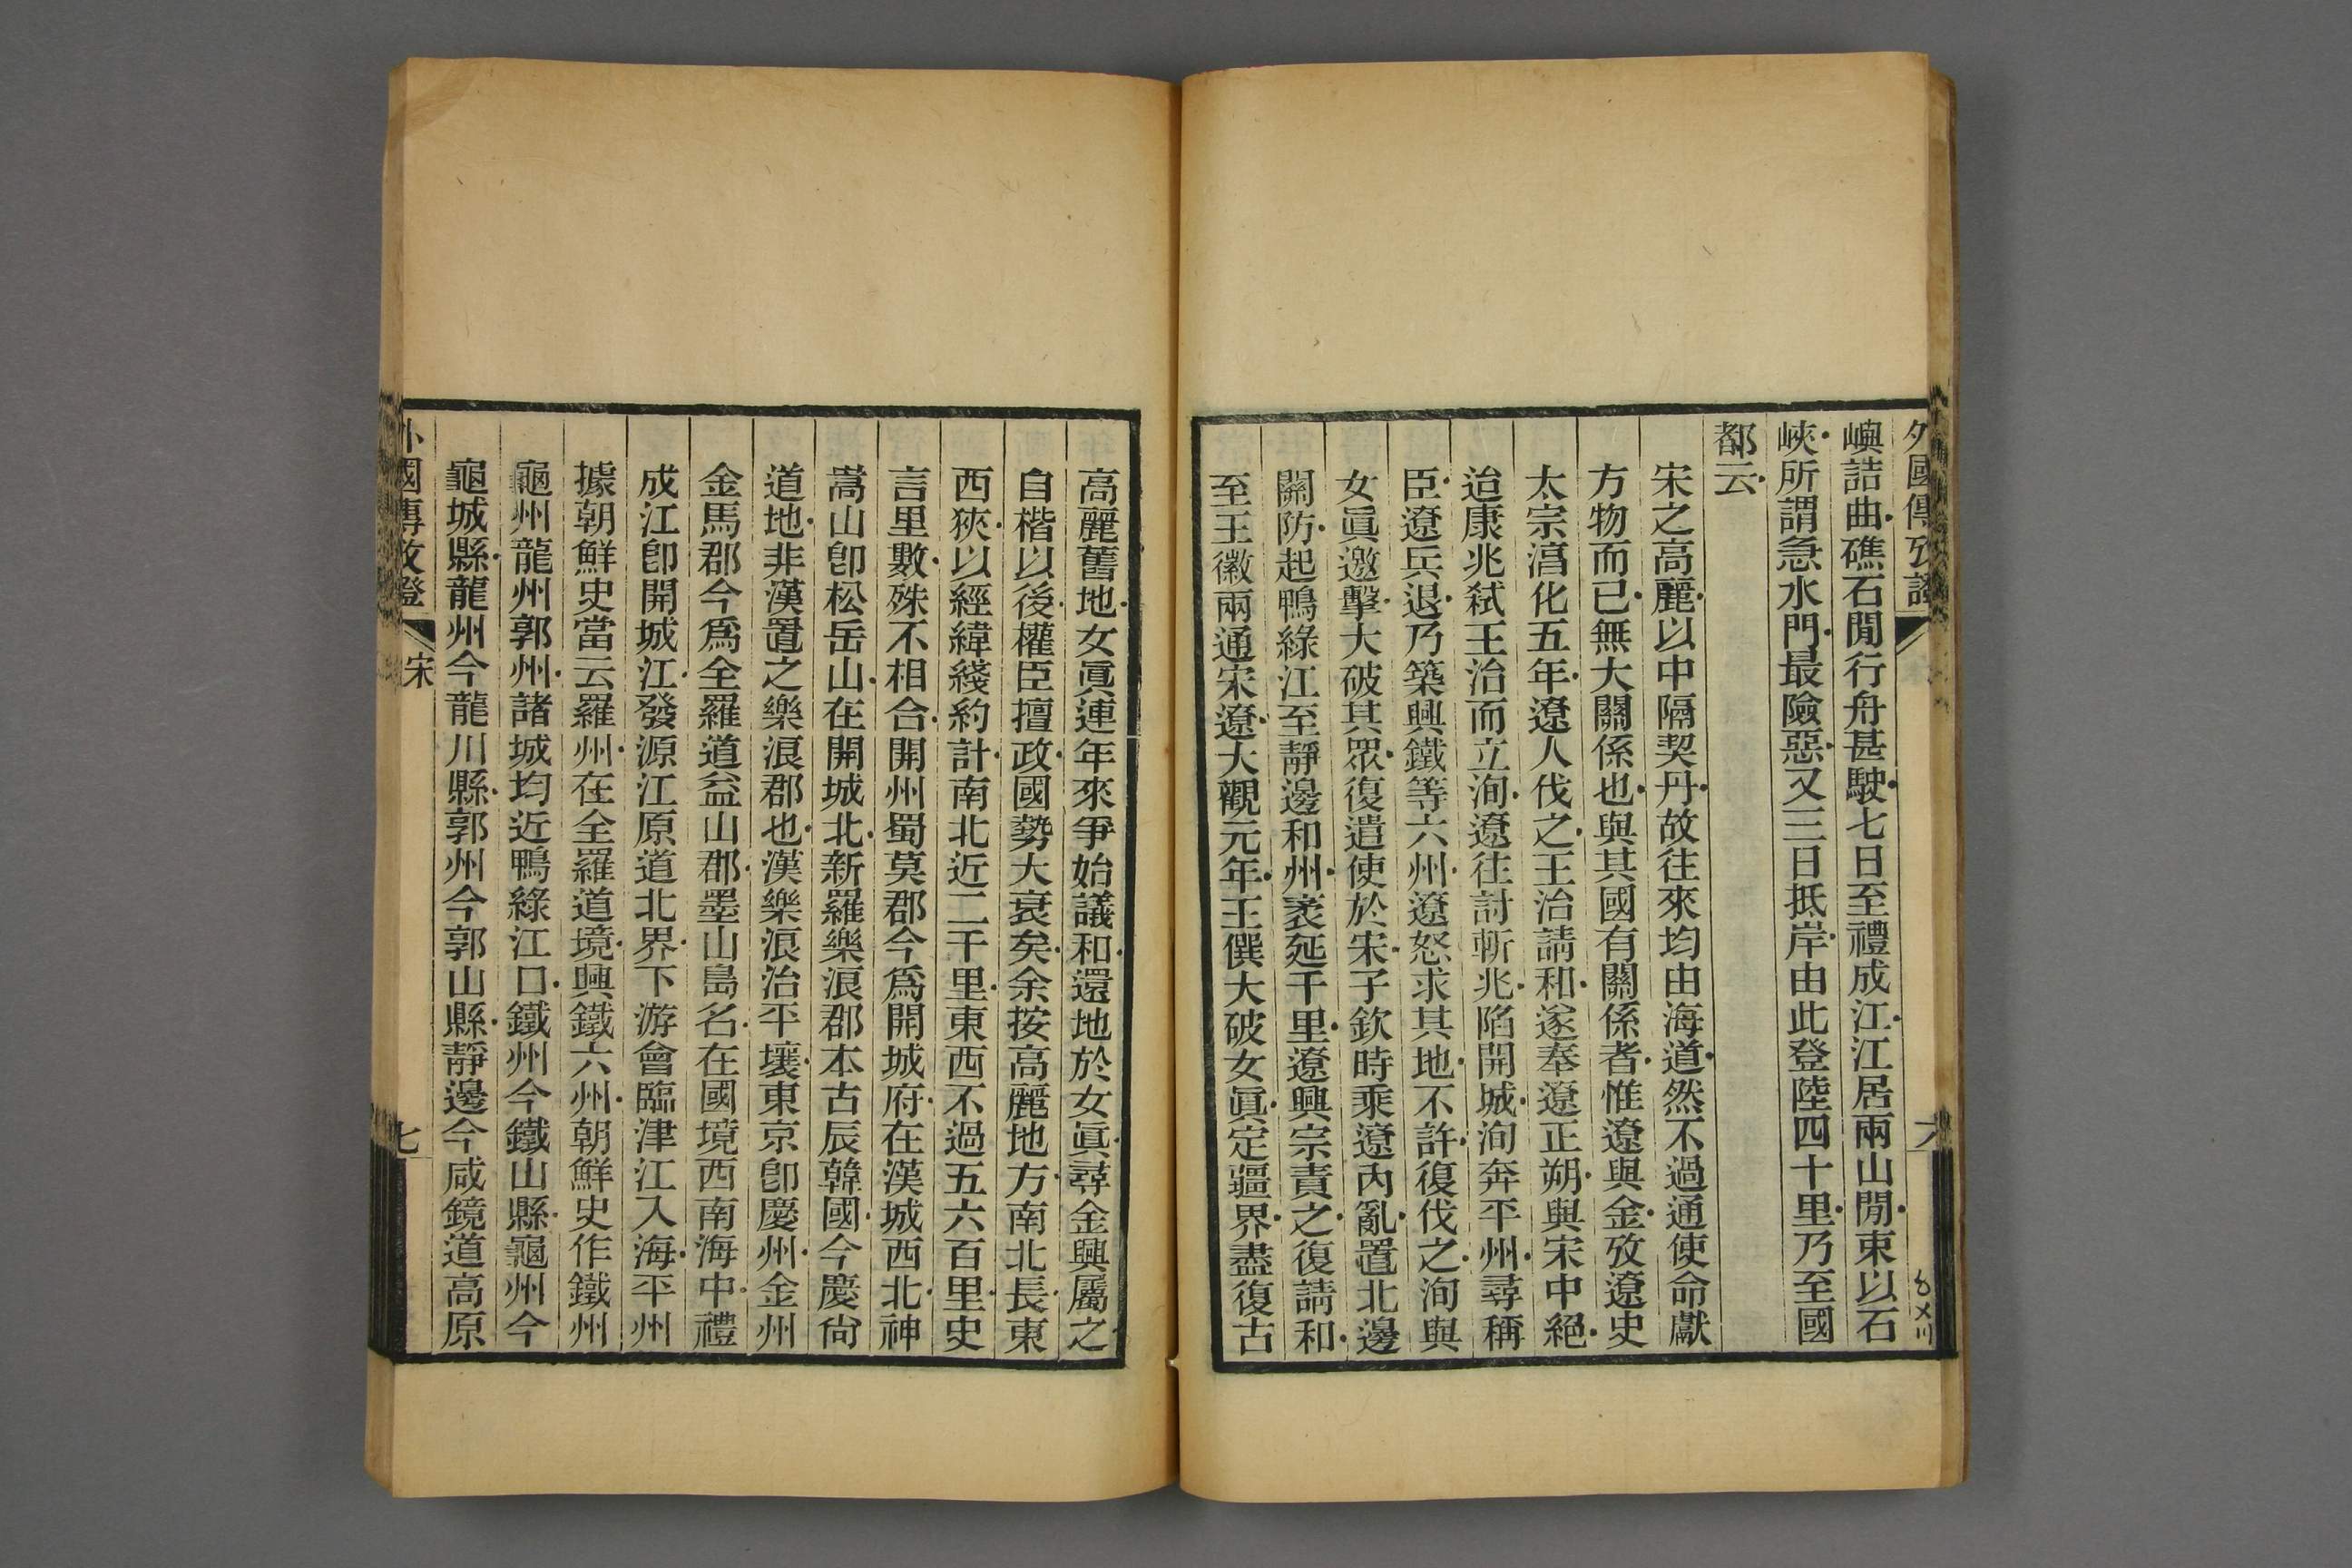 外國傳攷證
六
嶼詰曲礁石閒行舟甚駛七日至禮成江江居兩山閒束以石
峽所謂急水門最險惡又三日抵岸由此登陸四十里乃至國
都云
宋之高麗以中隔契丹故往來均由海道然不過通使命獻
方物而已無大關係也與其國有關係者惟遼與金攷遼史
太宗淯化五年遼人伐之王治請和遂奉遼正朔與宋中絕
迨康兆弒王治而立洵遼往討斬兆陷開城洵奔平州尋稱
臣遼兵退乃築興鐵等六州遼怒求其地不許復伐之洵與
女眞邀擊大破其眾復遣使於宋子欽時乘遼內亂置北邊
關防起鴨綠江至靜邊和州袤延千里遼興宗責之復請和
至王徽兩通宋遼大觀元年王僎大破女眞定疆界盡復古
高麗舊地女眞連年來爭始議和還地於女眞尋金興屬之
自楷以後權臣擅政國勢大衰矣余按高麗地方南北長東
西狹以經緯綫約計南北近二千里東西不過五六百里史
言里數殊不相合開州蜀莫郡今爲開城府在漢城西北神
嵩山卽松岳山在開城北新羅樂浪郡本古辰韓國今慶尙
道地非漢置之樂浪郡也漢樂浪治平壤東京卽慶州金州
金馬郡今爲全羅道益山郡墨山島名在國境西南海中禮
成江卽開城江發源江原道北界下游會臨津江入海平州
據朝鮮史當云羅州在全羅道境興鐵六州朝鮮史作鐵州
龜州龍州郭州諸城均近鴨綠江口鐵州今鐵山縣龜州今
龜城縣龍州今龍川縣郭州今郭山縣靜邊今咸鏡道高原
外國傳攷證
宋
七